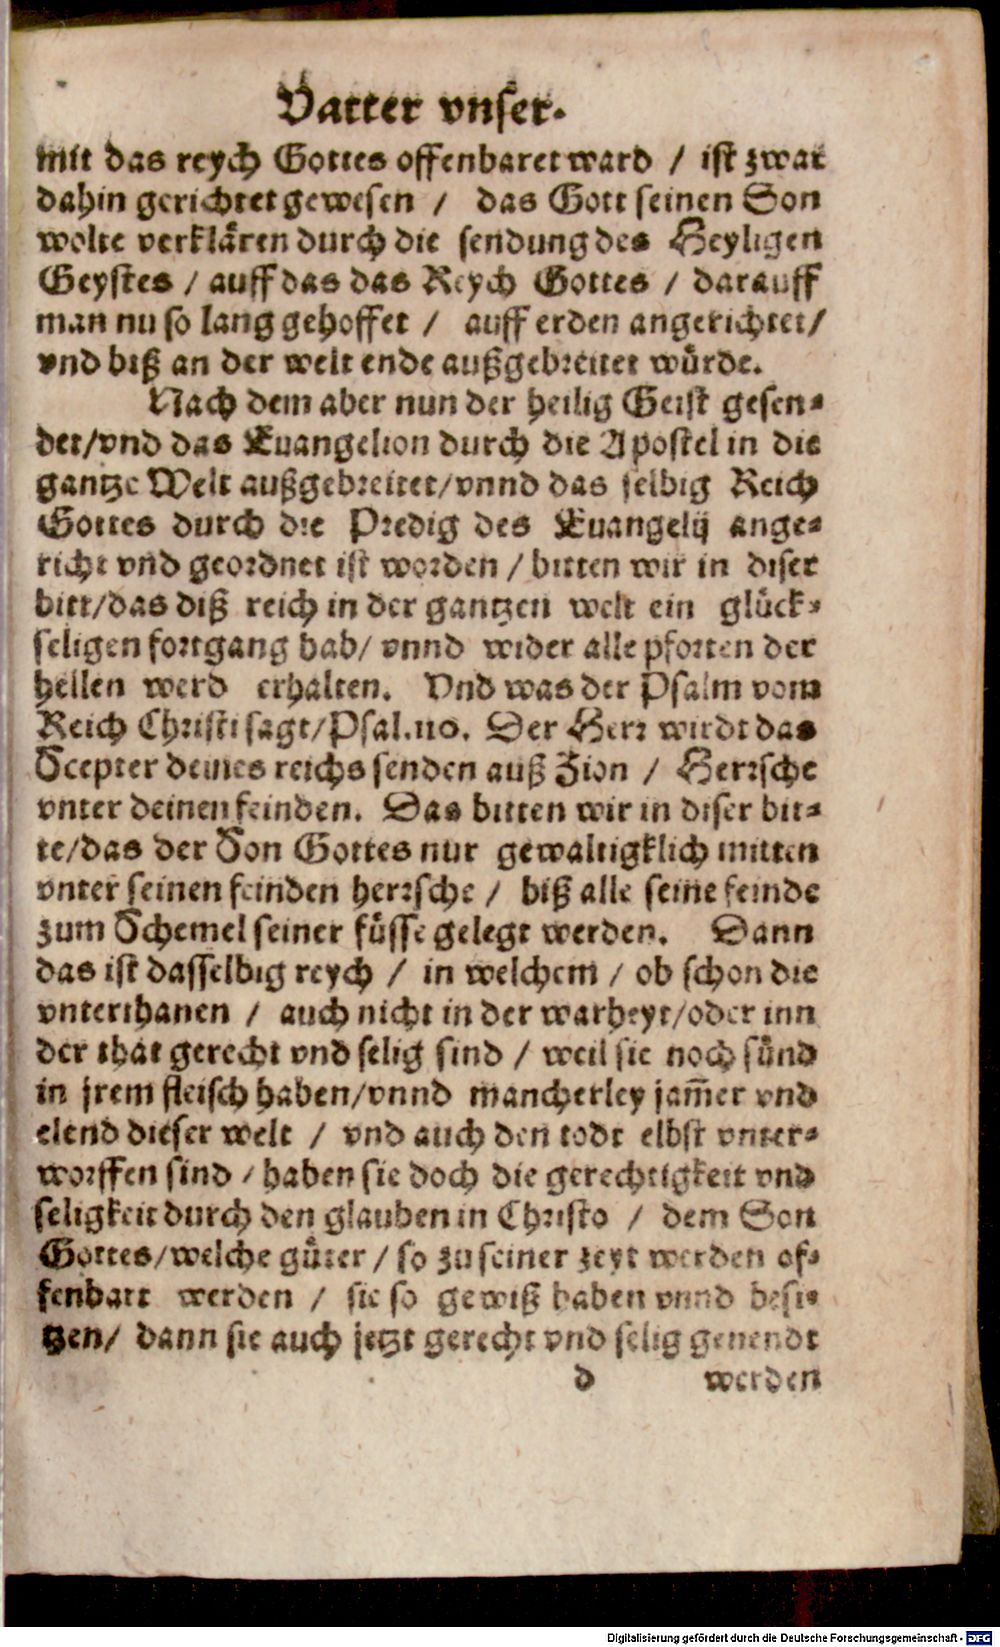 Vatter vnser.
mit das reych Gottes offenbaret ward / ist zwar
dahin gerichtet gewesen / das Gott seinen Son
wolte verklären durch die sendung des Heyligen
Geystes / auff das das Reych Gottes / darauff
man nu so lang gehoffet / auff erden angerichtet/
vnd biß an der welt ende außgebreitet würde.
Nach dem aber nun der heilig Geist gesen-
det/vnd das Euangelion durch die Apostel in die
gantze Welt außgebreitet/vnnd das selbig Reich
Gottes durch die Predig des Euangelij ange-
richt vnd geordnet ist worden / bitten wir in diser
bitt/das diß reich in der gantzen welt ein glück-
seligen fortgang hab/ vnnd wider alle pforten der
hellen werd erhalten. Vnd was der Psalm vom
Reich Christi sagt/Psal.110. Der Herr wirdt das
Scepter deines reichs senden auß Zion / Herrsche
vnter deinen feinden. Das bitten wir in diser bit-
te/das der Son Gottes nur gewaltigklich mitten
vnter seinen feinden herrsche / biß alle seine feinde
zum Schemel seiner füsse gelegt werden. Dann
das ist dasselbig reych / in welchem / ob schon die
vnterthanen / auch nicht in der warheyt/oder inn
der that gerecht vnd selig sind / weil sie noch sünd
in jrem fleisch haben/vnnd mancherley jam̄er vnd
elend dieser welt / vnd auch den todt elbst vnter-
worffen sind / haben sie doch die gerechtigkeit vnd
seligkeit durch den glauben in Christo / dem Son
Gottes/welche güter / so zu seiner zeyt werden of-
fenbart werden / sie so gewiß haben vnnd besi-
tzen/ dann sie auch jetzt gerecht vnd selig genendt
d werden
Digitalisierung gefördert durch die Deutsche Forschungsgemeinschaft - DFG